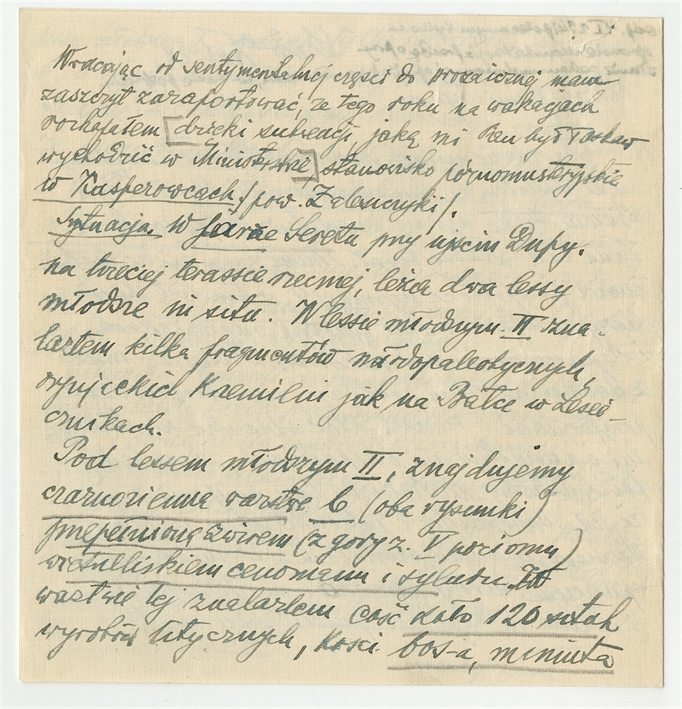 Wracając od sentymentalnej części do prozaicznej mam
zaszczyt zaraportować, że tego roku na wakacjach
rozkopałem [dzięki subwencji jaką mi Pan był łaskaw
wychodzić w Ministerstwie] stanowisko późnomustyrskie
w Kasperowcach /pow. Zaleszczyki/.
Sytuacja. W jarze Seretu przy ujściu Dupy,
na trzeciej terassie rzecznej, leżą dwa lessy
młodsze in situ. W lessie młodszym II zna-
lazłem kilka fragmentów młodopaleotycznych,
krzemieni jak na Bałce w
czukach.
Pod lessem młodszym II, znajdujemy
czarnoziemną warstwę b (oba rysunki)
przepełnioną żwirem (z góry z V poziomu)
cenomanu i
warstwie tej znalazłem coś koło 120 sztuk
wyrobów litycznych, kości bos-a,